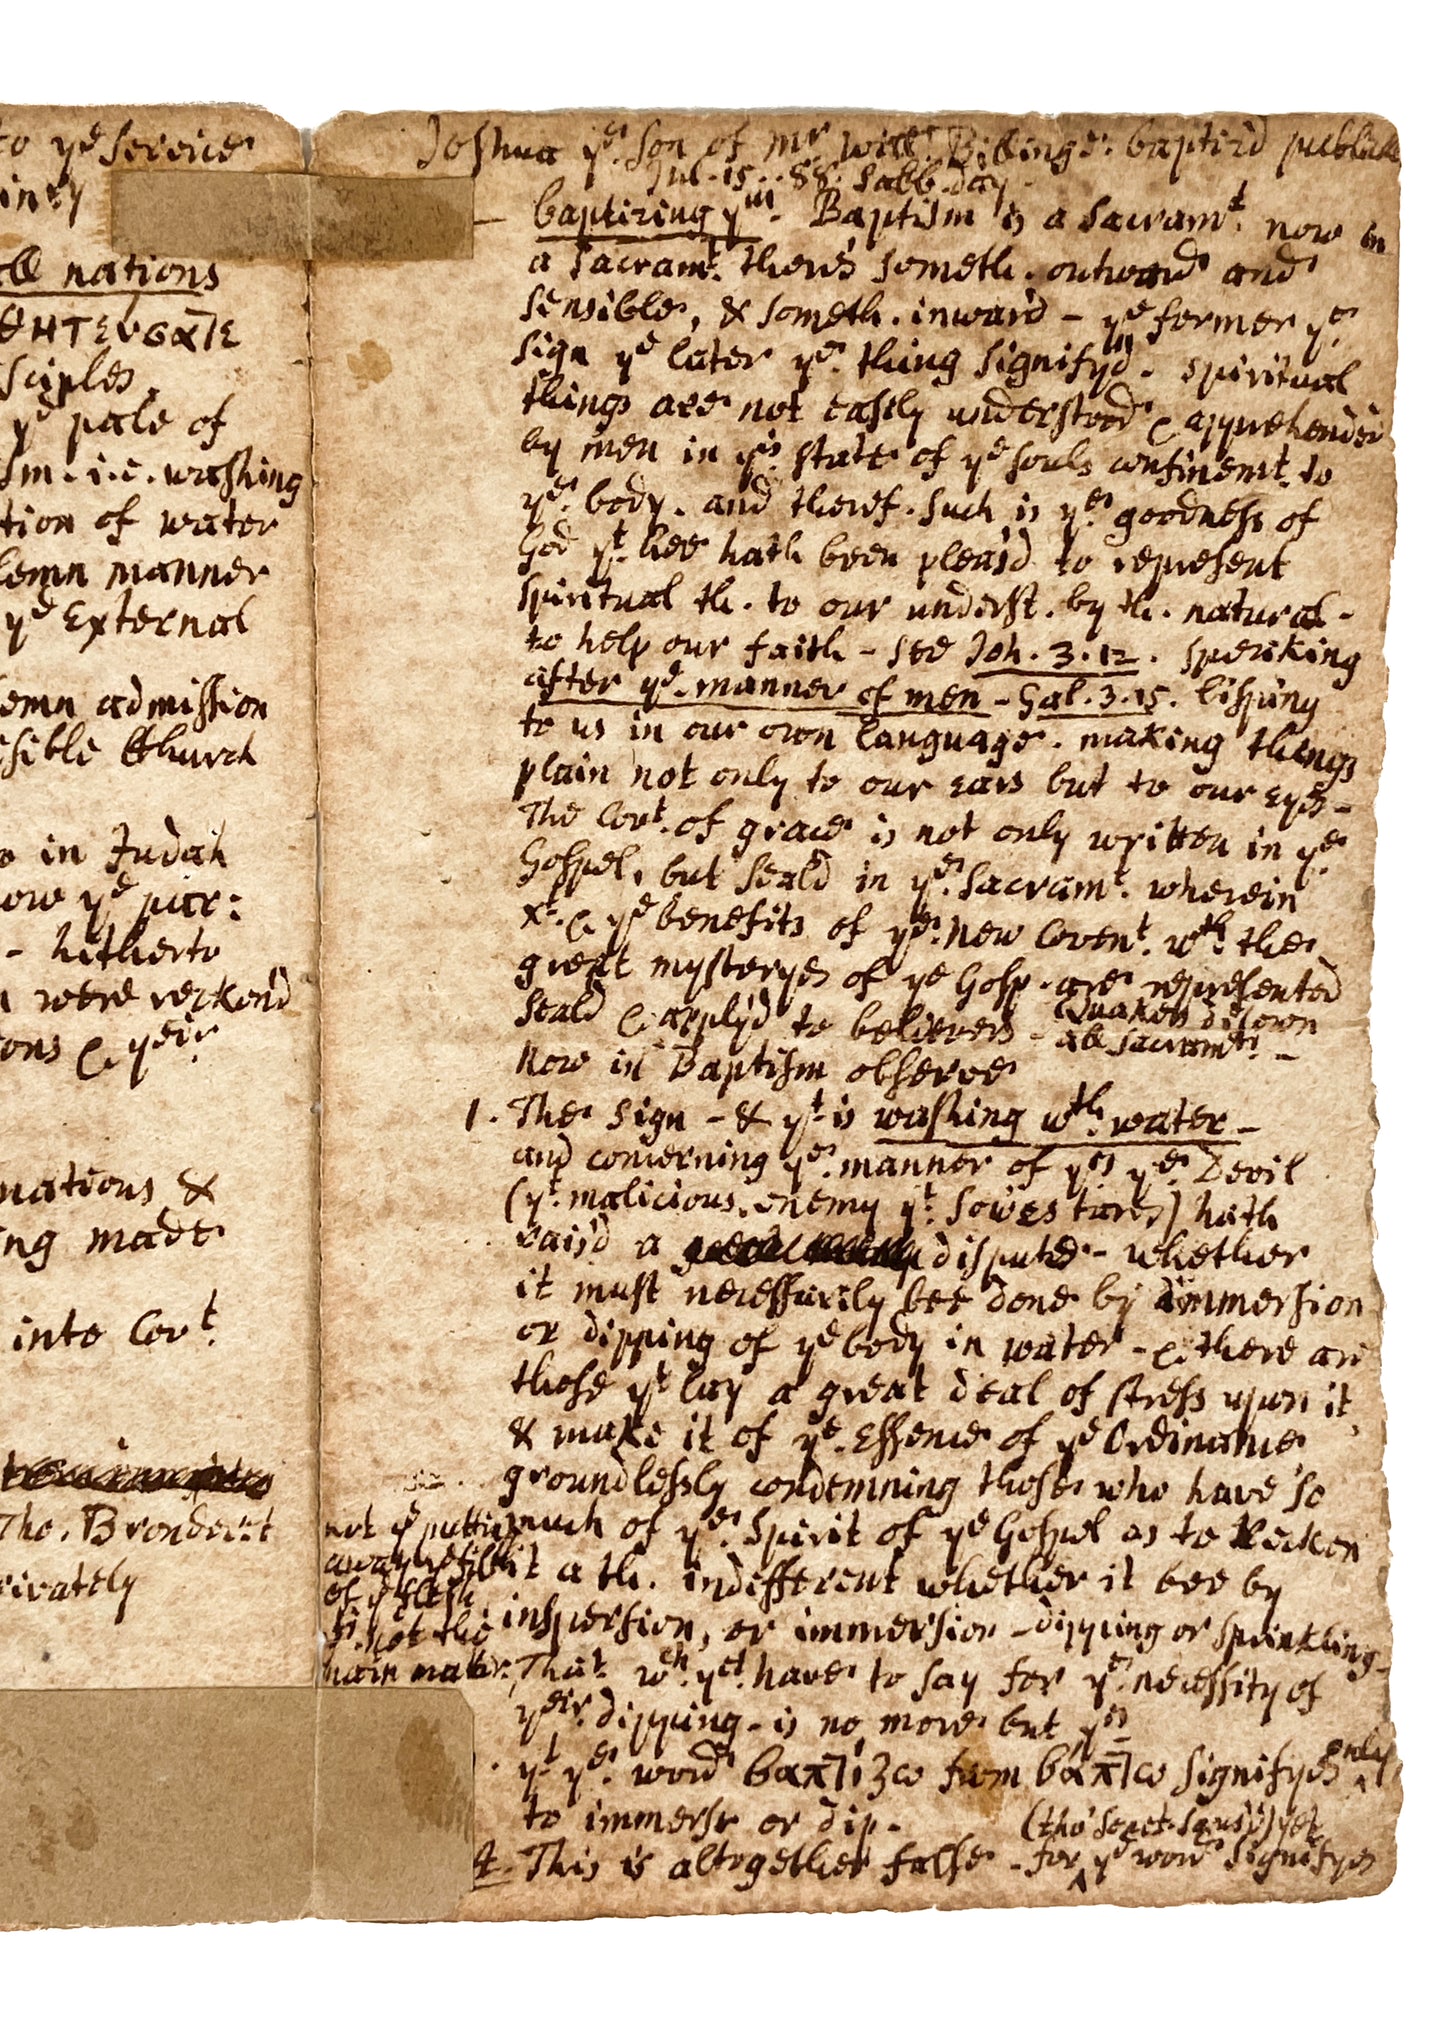 to yᵉ service
all nations
sciples.
yᵉ pale of
sm. i.e. washing
tion of water
lemn manner
yᵉ External
lemn admission
sible Church
in Judah
ow yᵉ par:
- hitherto
were reckon'd
ons & yᵉⁱʳ
nations &
ng made
into Covᵗ.
Tho. Brondert
rivately
Joshua yᵉ son of Mʳ Willᵐ Billinge baptizd publickly
Jul. 15. 88. Sabb. day.
- baptizing yᵐ. Baptism is a Sacramᵗ. now in
a Sacramᵗ. there's someth. outward and
sensible, & someth. inward - yᵉ former yᵉ
sign yᵉ later yᵉ thing signifyd. spiritual
things are not easily understood & apprehended
by men in yˢ state of yᵉ souls confinemᵗ. to
yᵉ body. and theref. such is yᵉ goodness of
God yᵗ hee hath been pleas'd to represent
spiritual th. to our underst. by th. natural -
to help our faith - see Joh. 3. 12. speaking
after yᵉ manner of men - Gal. 3. 15. lisping
to us in our own language. making things
plain not only to our ears but to our eyes -
The Covᵗ. of grace is not only written in yᵉ
Gospel, but seald in yᵉ Sacramᵗ. wherein
Xᵗ. & yᵉ benefits of yᵉ New Covenᵗ. wᵗʰ the
great mysteryes of yᵉ Gosp. are represented
seald & apply'd to believers - Quakers disown
all Sacramᵗˢ. -
Now in Baptism observe
1. The Sign - & yᵗ is washing wᵗʰ water -
and concerning yᵉ manner of yˢ yᵉ Devil
(yᵗ malicious enemy yᵗ sowes tares) hath
rais'd a dispute - whether
it must necessarily bee done by immersion
or dipping of yᵉ body in water - & there are
those yᵗ lay a great deal of stress upon it
& make it of yᵉ Essence of yᵉ Ordinance
groundlessly condemning those who have so
much of yᵉ Spirit of yᵉ Gospel as to reckon
it a th. indifferent whether it bee by
inspersion, or immersion - dipping or sprinkling -
not yᵉ putting
away yᵉ filth
of yᵉ flesh
not the
main matter.
That wᶜʰ yᵉʸ have to say for yᵉ necessity of
yᵉⁱʳ dipping - is no more but yˢ
yᵗ yᵉ word βαπτίζω from βάπτω signifyes only
to immerse or dip.
A. This is altogether false - for yᵉ word signifyes